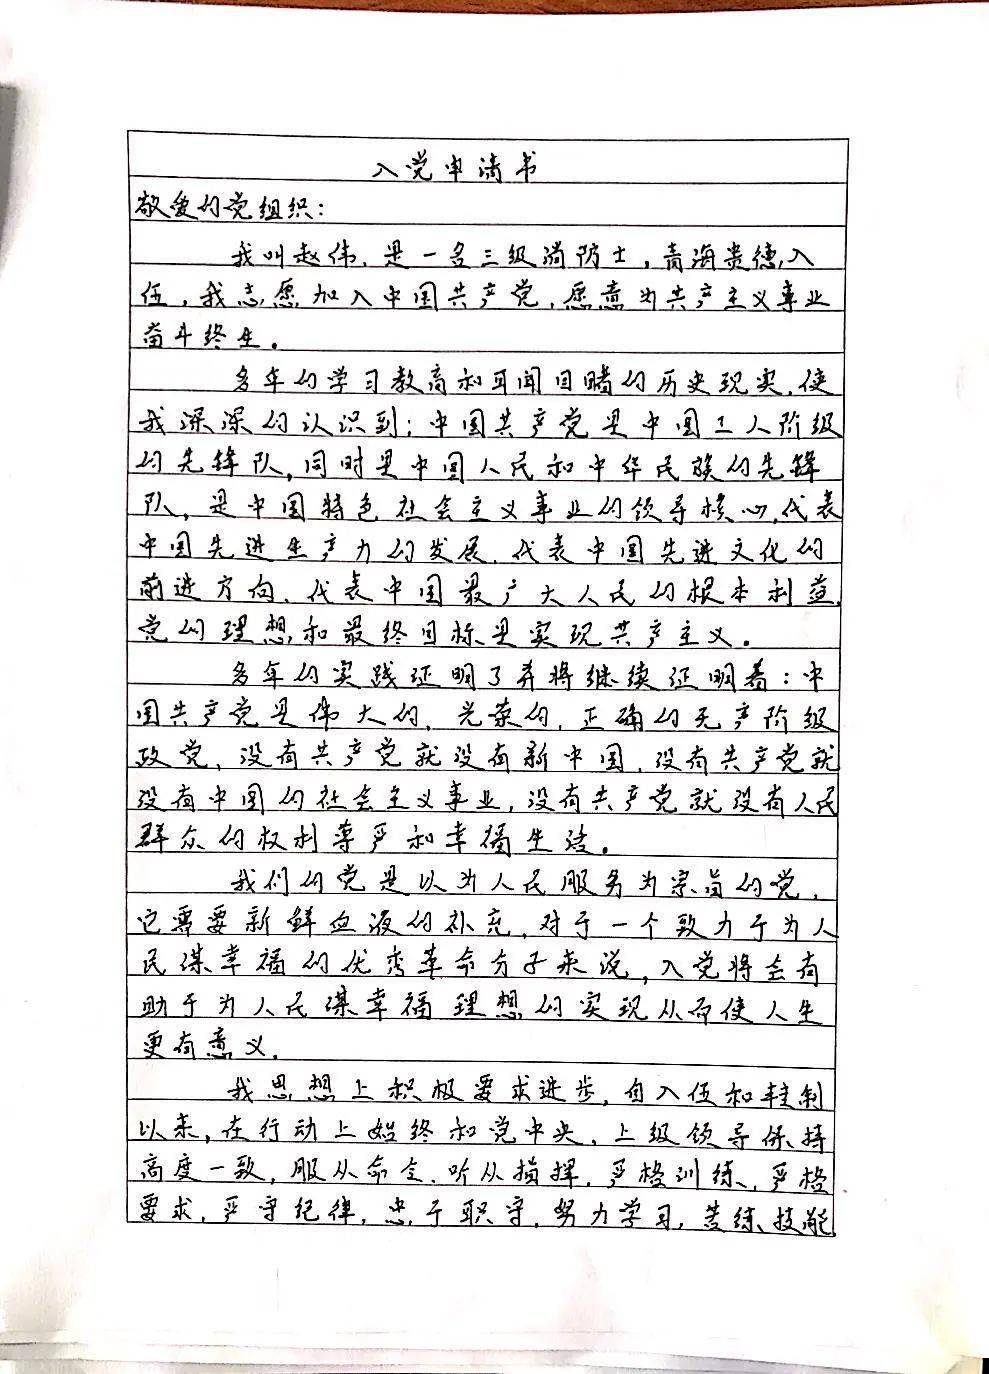 入党申请书
敬爱的党组织：
我叫赵伟，是一名三级消防士，青海贵德入
伍，我志愿加入中国共产党，愿意为共产主义事业
奋斗终生。
多年的学习教育和耳闻目睹的历史现实，使
我深深的认识到：中国共产党是中国工人阶级
的先锋队，同时是中国人民和中华民族的先锋
队，是中国特色社会主义事业的领导核心，代表
中国先进生产力的发展，代表中国先进文化的
前进方向，代表中国最广大人民的根本利益，
党的理想和最终目标是实现共产主义。
多年的实践证明了并将继续证明着：中
国共产党是伟大的，光荣的，正确的无产阶级
政党，没有共产党就没有新中国，没有共产党就
没有中国的社会主义事业，没有共产党就没有人民
群众的权利尊严和幸福生活。
我们的党是以为人民服务为宗旨的党，
它需要新鲜血液的补充，对于一个致力于为人
民谋幸福的优秀革命分子来说，入党将会有
助于为人民谋幸福理想的实现从而使人生
更有意义。
我思想上积极要求进步，自入伍和转制
以来，在行动上始终和党中央，上级领导保持
高度一致，服从命令，听从指挥，严格训练，严格
要求，严守纪律，忠于职守，努力学习，苦练技能，